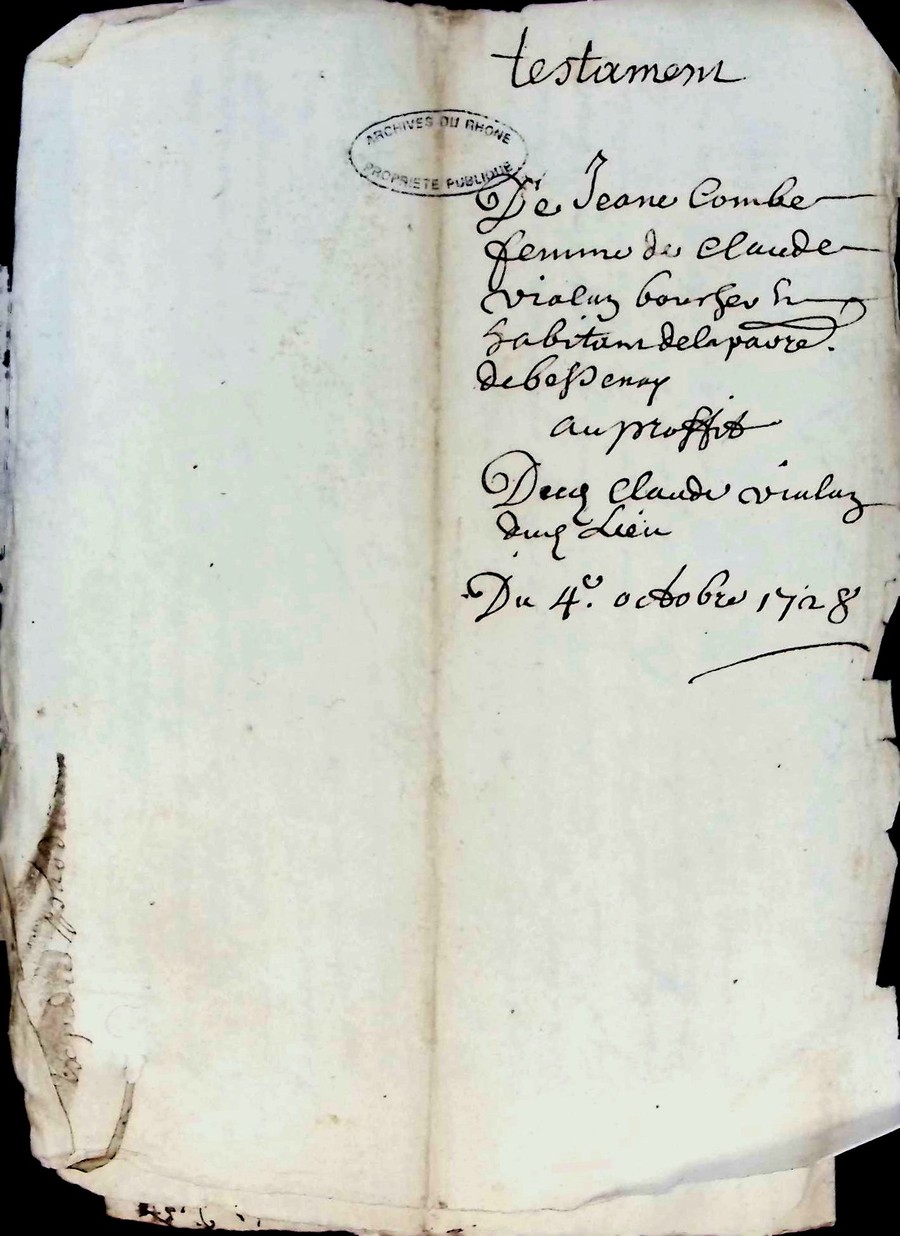 testament
ARCHIVES DU RHONE
PROPRIETE PUBLIQUE
De Jeane Combe
femme de Claude
vialuz boucher h
habitant delaparre.
debessenay
au proffit
Ducq Claude vialuz
ducq Lieu
Du 4e. octobre 1728